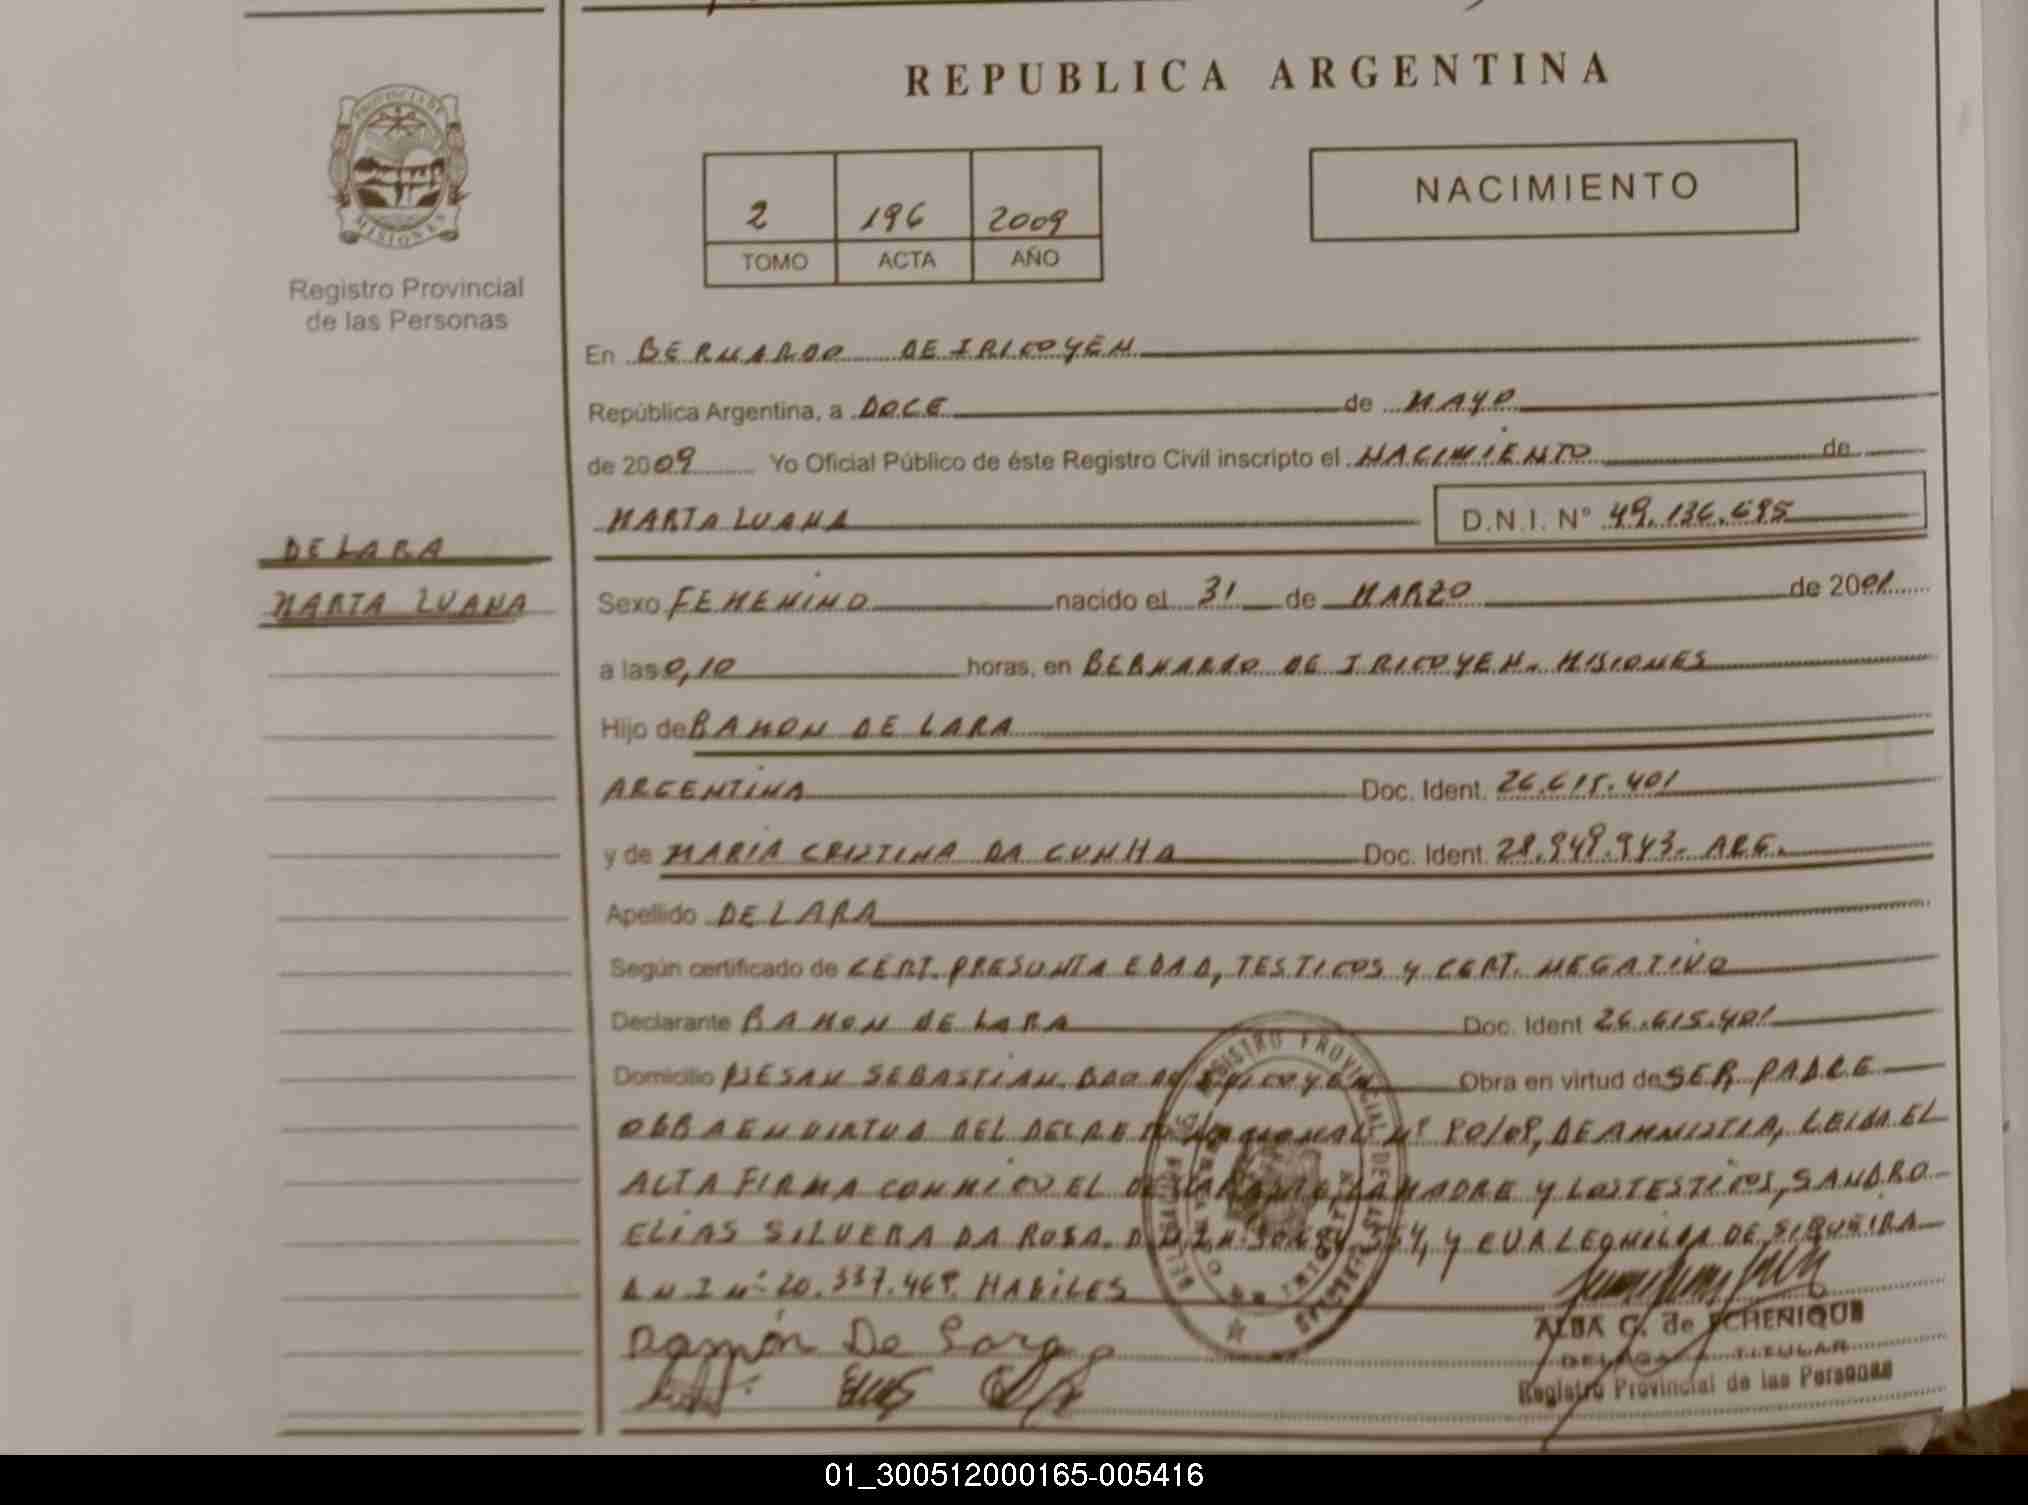 REPUBLICA ARGENTINA
PROVINCIA DE
MISIONES
Registro Provincial
de las Personas
2 196 2009
TOMO ACTA AÑO
NACIMIENTO
En BERNARDO DE IRIGOYEN
República Argentina, a DOCE de MAYO
de 2009 Yo Oficial Público de éste Registro Civil inscripto el NACIMIENTO de
MARTA LUANA D.N.I. N° 49.136.695
DE LARA
MARTA LUANA
Sexo FEMENINO nacido el 31 de MARZO de 2001
a las 0,10 horas, en BERNARDO DE IRIGOYEN. MISIONES
Hijo de RAMON DE LARA
ARGENTINA Doc. Ident. 26.615.401
y de MARIA CRISTINA DA CUNHA Doc. Ident. 28.949.943. ARG.
Apellido DE LARA
Según certificado de CERT. PRESUNTA EDAD, TESTIGOS y CERT. NEGATIVO
Declarante RAMON DE LARA Doc. Ident 26.615.401
Domicilio SEBASTIAN. BDO DE IRIGOYEN Obra en virtud de SER PADRE
OBRA EN VIRTUD DEL DECRETO NACIONAL N° 90/09, DE AMNISTIA, LEIDA EL
ACTA FIRMA CONMIGO EL DECLARANTE, LA MADRE y LOS TESTIGOS, SANDRO
ELIAS SILVERA DA ROSA. y EVA LEONILDA DE SIQUEIRA
D N I N° 20.337.469. HABILES
Ramón De Lara
ALBA G. de ECHENIQUE
DELEGADA TITULAR
Registro Provincial de las Personas
01_300512000165-005416